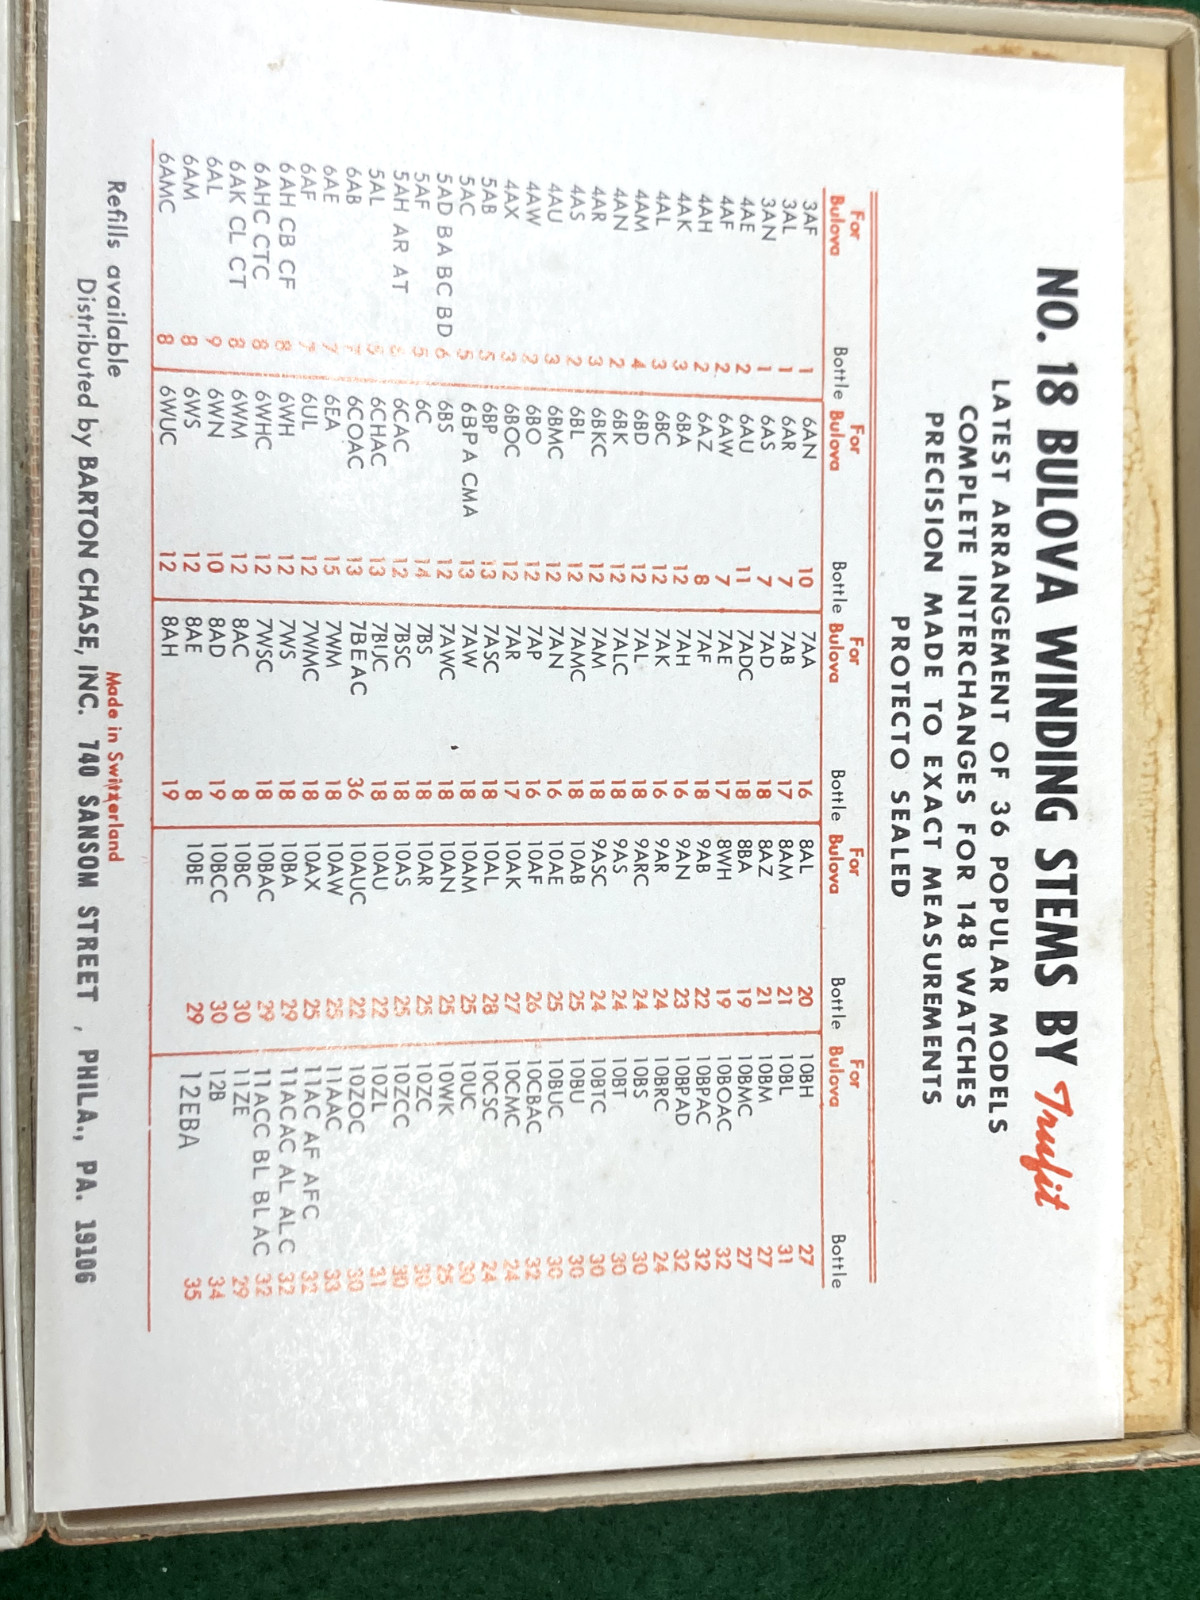 NO. 18 BULOVA WINDING STEMS BY Trufit
LATEST ARRANGEMENT OF 36 POPULAR MODELS
COMPLETE INTERCHANGES FOR 148 WATCHES
PRECISION MADE TO EXACT MEASUREMENTS
PROTECTO SEALED
For For For For For
Bulova Bottle Bulova Bottle Bulova Bottle Bulova Bottle Bulova Bottle
3AF 1 6AN 10 7AA 16 8AL 20 10BH 27
3AL 1 6AR 7 7AB 17 8AM 21 10BL 31
3AN 1 6AS 7 7AD 18 8AZ 21 10BM 27
4AE 2 6AU 11 7ADC 18 8BA 19 10BMC 27
4AF 2 6AW 7 7AE 17 8WH 19 10BOAC 32
4AH 2 6AZ 8 7AF 18 9AB 22 10BPAC 32
4AK 3 6BA 12 7AH 16 9AN 23 10BPAD 32
4AL 3 6BC 12 7AK 16 9AR 24 10BRC 24
4AM 4 6BD 12 7AL 18 9ARC 24 10BS 30
4AN 2 6BK 12 7ALC 18 9AS 24 10BT 30
4AR 3 6BKC 12 7AM 18 9ASC 24 10BTC 30
4AS 2 6BL 12 7AMC 18 10AB 25 10BU 30
4AU 3 6BMC 12 7AN 16 10AE 25 10BUC 30
4AW 2 6BO 12 7AP 16 10AF 26 10CBAC 32
4AX 3 6BOC 12 7AR 17 10AK 27 10CMC 24
5AB 5 6BP 13 7ASC 18 10AL 28 10CSC 24
5AC 5 6BPA CMA 13 7AW 18 10AM 25 10UC 30
5AD BA BC BD 6 6BS 12 7AWC 18 10AN 25 10WK 25
5AF 5 6C 14 7BS 18 10AR 25 10ZC 30
5AH AR AT 6 6CAC 12 7BSC 18 10AS 25 10ZCC 30
5AL 5 6CHAC 13 7BUC 18 10AU 22 10ZL 31
6AB 7 6COAC 13 7BEAC 36 10AUC 22 10ZOC 30
6AE 7 6EA 15 7WM 18 10AW 25 11AAC 33
6AF 7 6UL 12 7WMC 18 10AX 25 11AC AF AFC 32
6AH CB CF 8 6WH 12 7WS 18 10BA 29 11ACAC AL ALC 32
6AHC CTC 8 6WHC 12 7WSC 18 10BAC 29 11ACC BL BLAC 32
6AK CL CT 8 6WM 12 8AC 8 10BC 30 11ZE 29
6AL 9 6WN 10 8AD 19 10BCC 30 12B 34
6AM 8 6WS 12 8AE 8 10BE 29 12EBA 35
6AMC 8 6WUC 12 8AH 19
Refills available Made in Switzerland
Distributed by BARTON CHASE, INC. 740 SANSOM STREET , PHILA., PA. 19106